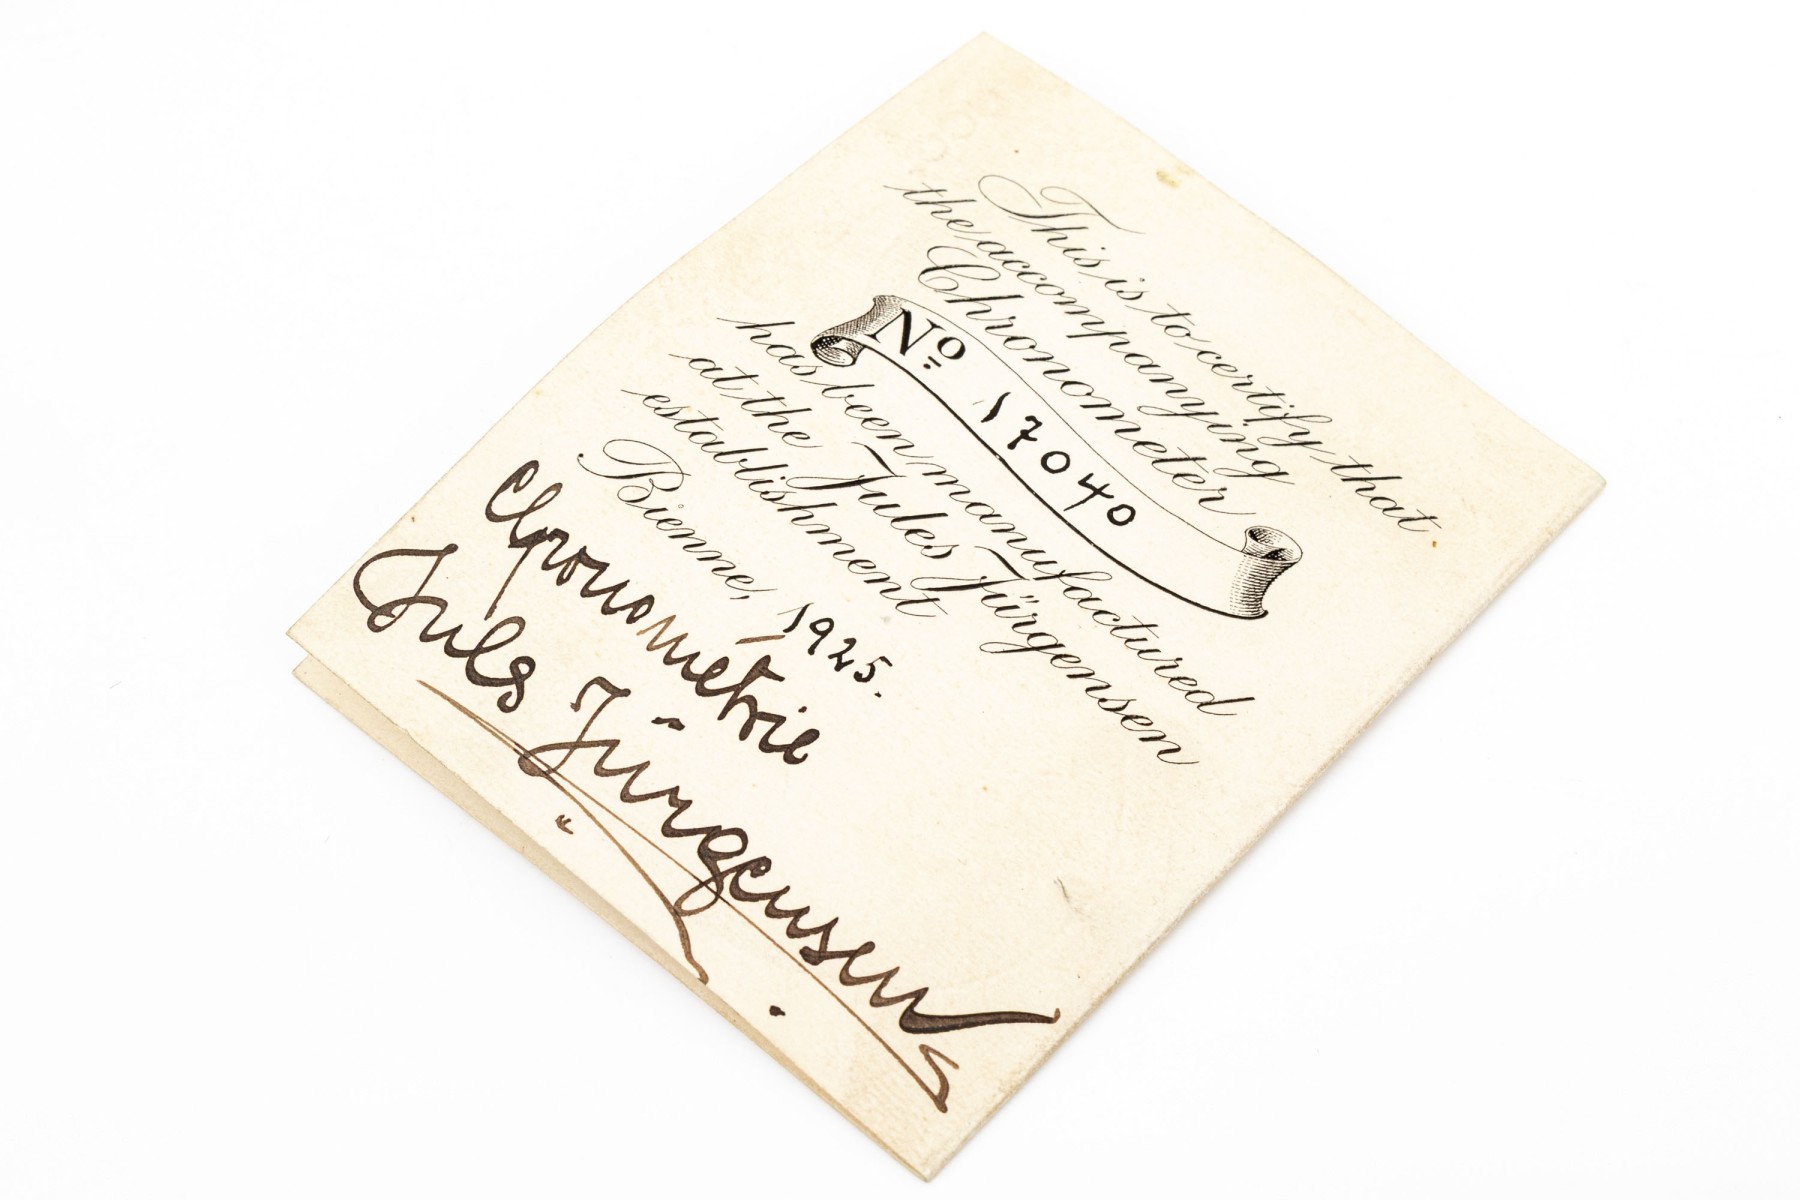 This is to certify that
the accompanying
Chronometer
No 17040
has been manufactured
at the Jules Jürgensen
establishment
Bienne, 1925.
Chronométrie
Jules Jürgensen